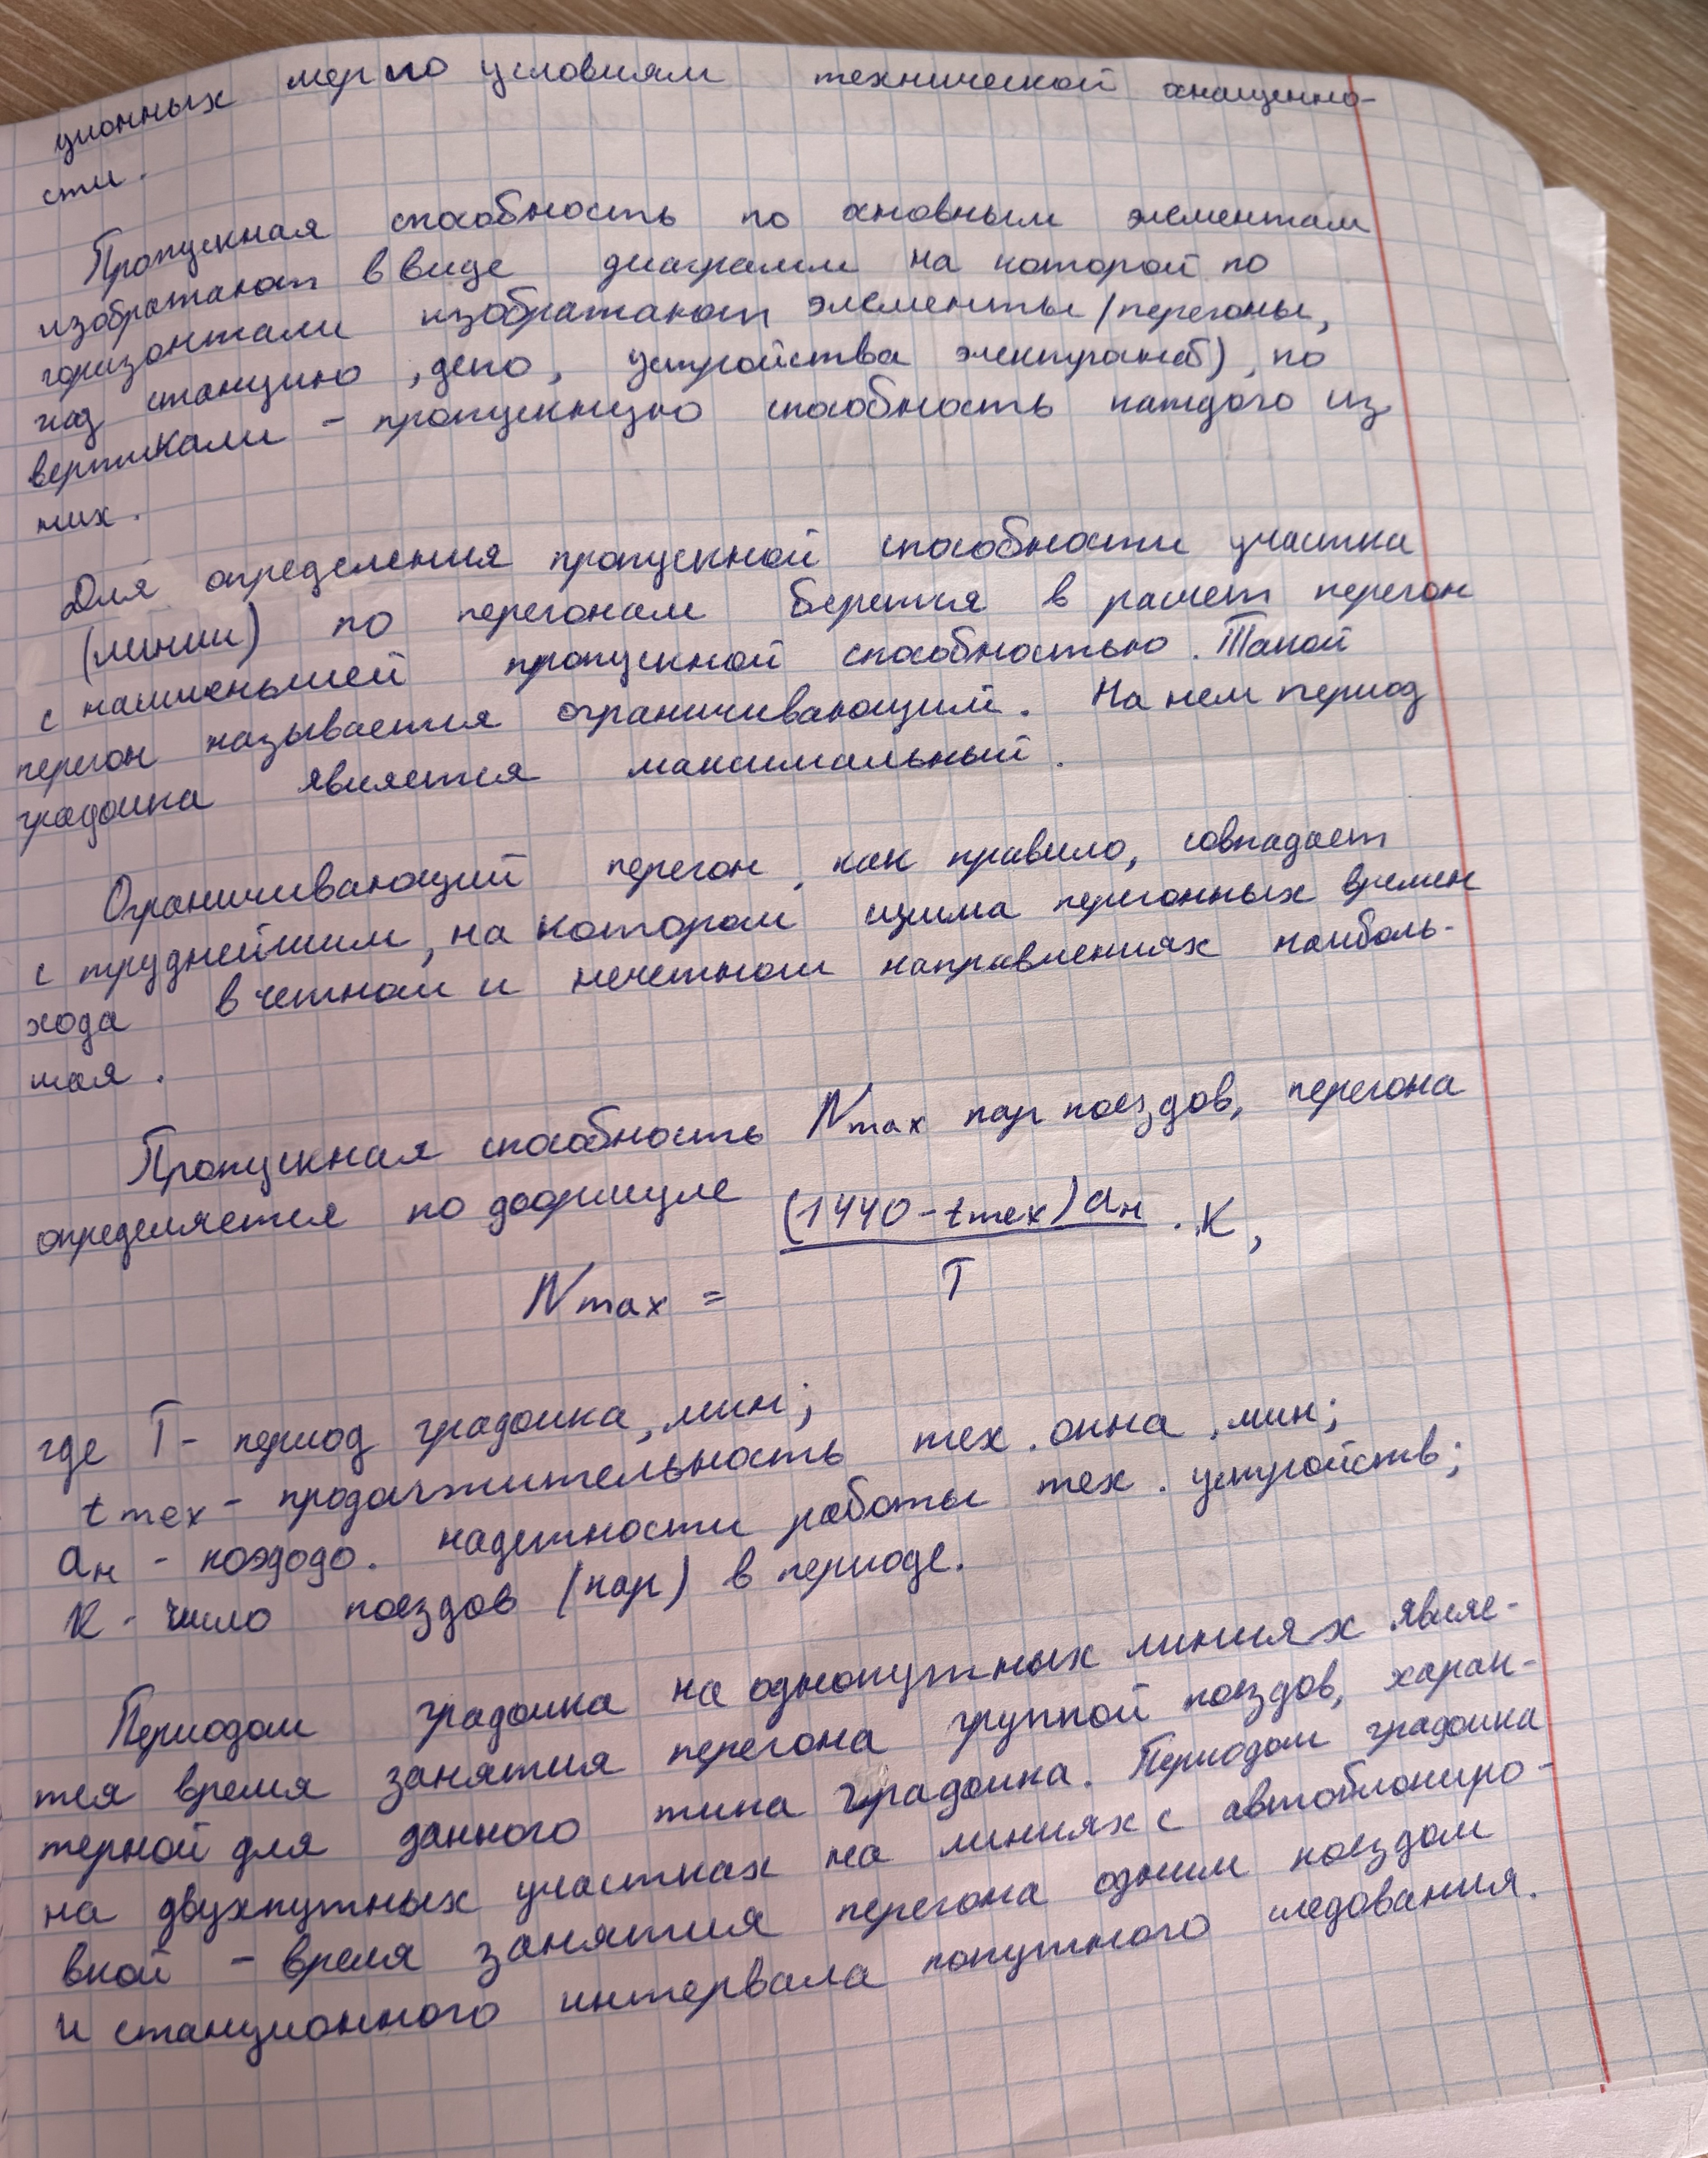 ционных мер по условиям технической оснащенно-
сти.
Пропускная способность по основным элементам
изображают в виде диаграмм на которой по
горизонтали изображают элементы (перегоны,
жд станцию, депо, устройства электроснаб), по
вертикали - пропускную способность каждого из
них.
Для определения пропускной способности участка
(линии) по перегонам берется в расчет перегон
с наименьшей пропускной способностью. Такой
перегон называется ограничивающим. На нем период
графика является максимальный.
Ограничивающий перегон, как правило, совпадает
с труднейшим, на котором сумма перегонных времен
хода в четном и нечетном направлениях наиболь-
шая.
Пропускная способность Nmax пар поездов, перегона
определяется по формуле
Nmax = (1440 - tтех) aн / T · K,
где T - период графика, мин;
tтех - продолжительность тех. окна, мин;
aн - коэффо. надежности работы тех. устройств;
K - число поездов (пар) в периоде.
Периодом графика на однопутных линиях являе-
тся время занятия перегона группой поездов, харак-
терной для данного типа графика. Периодом графика
на двухпутных участках на линиях с автоблокиро-
вкой - время занятия перегона одним поездом
и станционного интервала попутного следования.